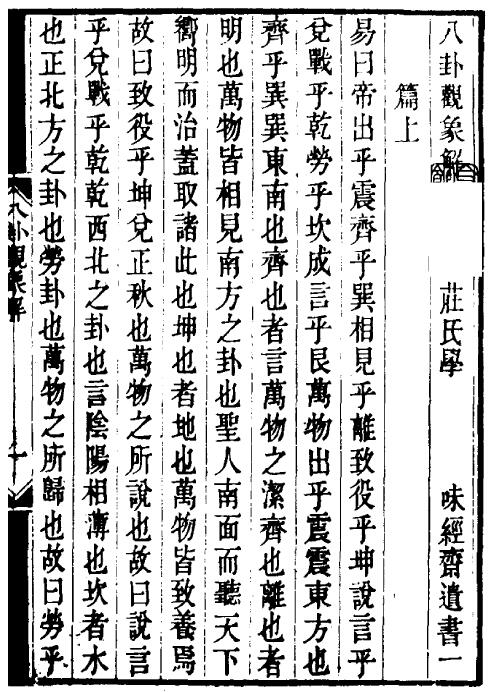 八卦觀象解 莊氏學 味經齋遺書一
篇上
易曰帝出乎震齊乎巽相見乎離致役乎坤說言乎
兌戰乎乾勞乎坎成言乎艮萬物出乎震震東方也
齊乎巽巽東南也齊也者言萬物之潔齊也離也者
明也萬物皆相見南方之卦也聖人南面而聽天下
嚮明而治蓋取諸此也坤也者地也萬物皆致養焉
故曰致役乎坤兌正秋也萬物之所說也故曰說言
乎兌戰乎乾乾西北之卦也言陰陽相薄也坎者水
也正北方之卦也勞卦也萬物之所歸也故曰勞乎
八卦觀象解